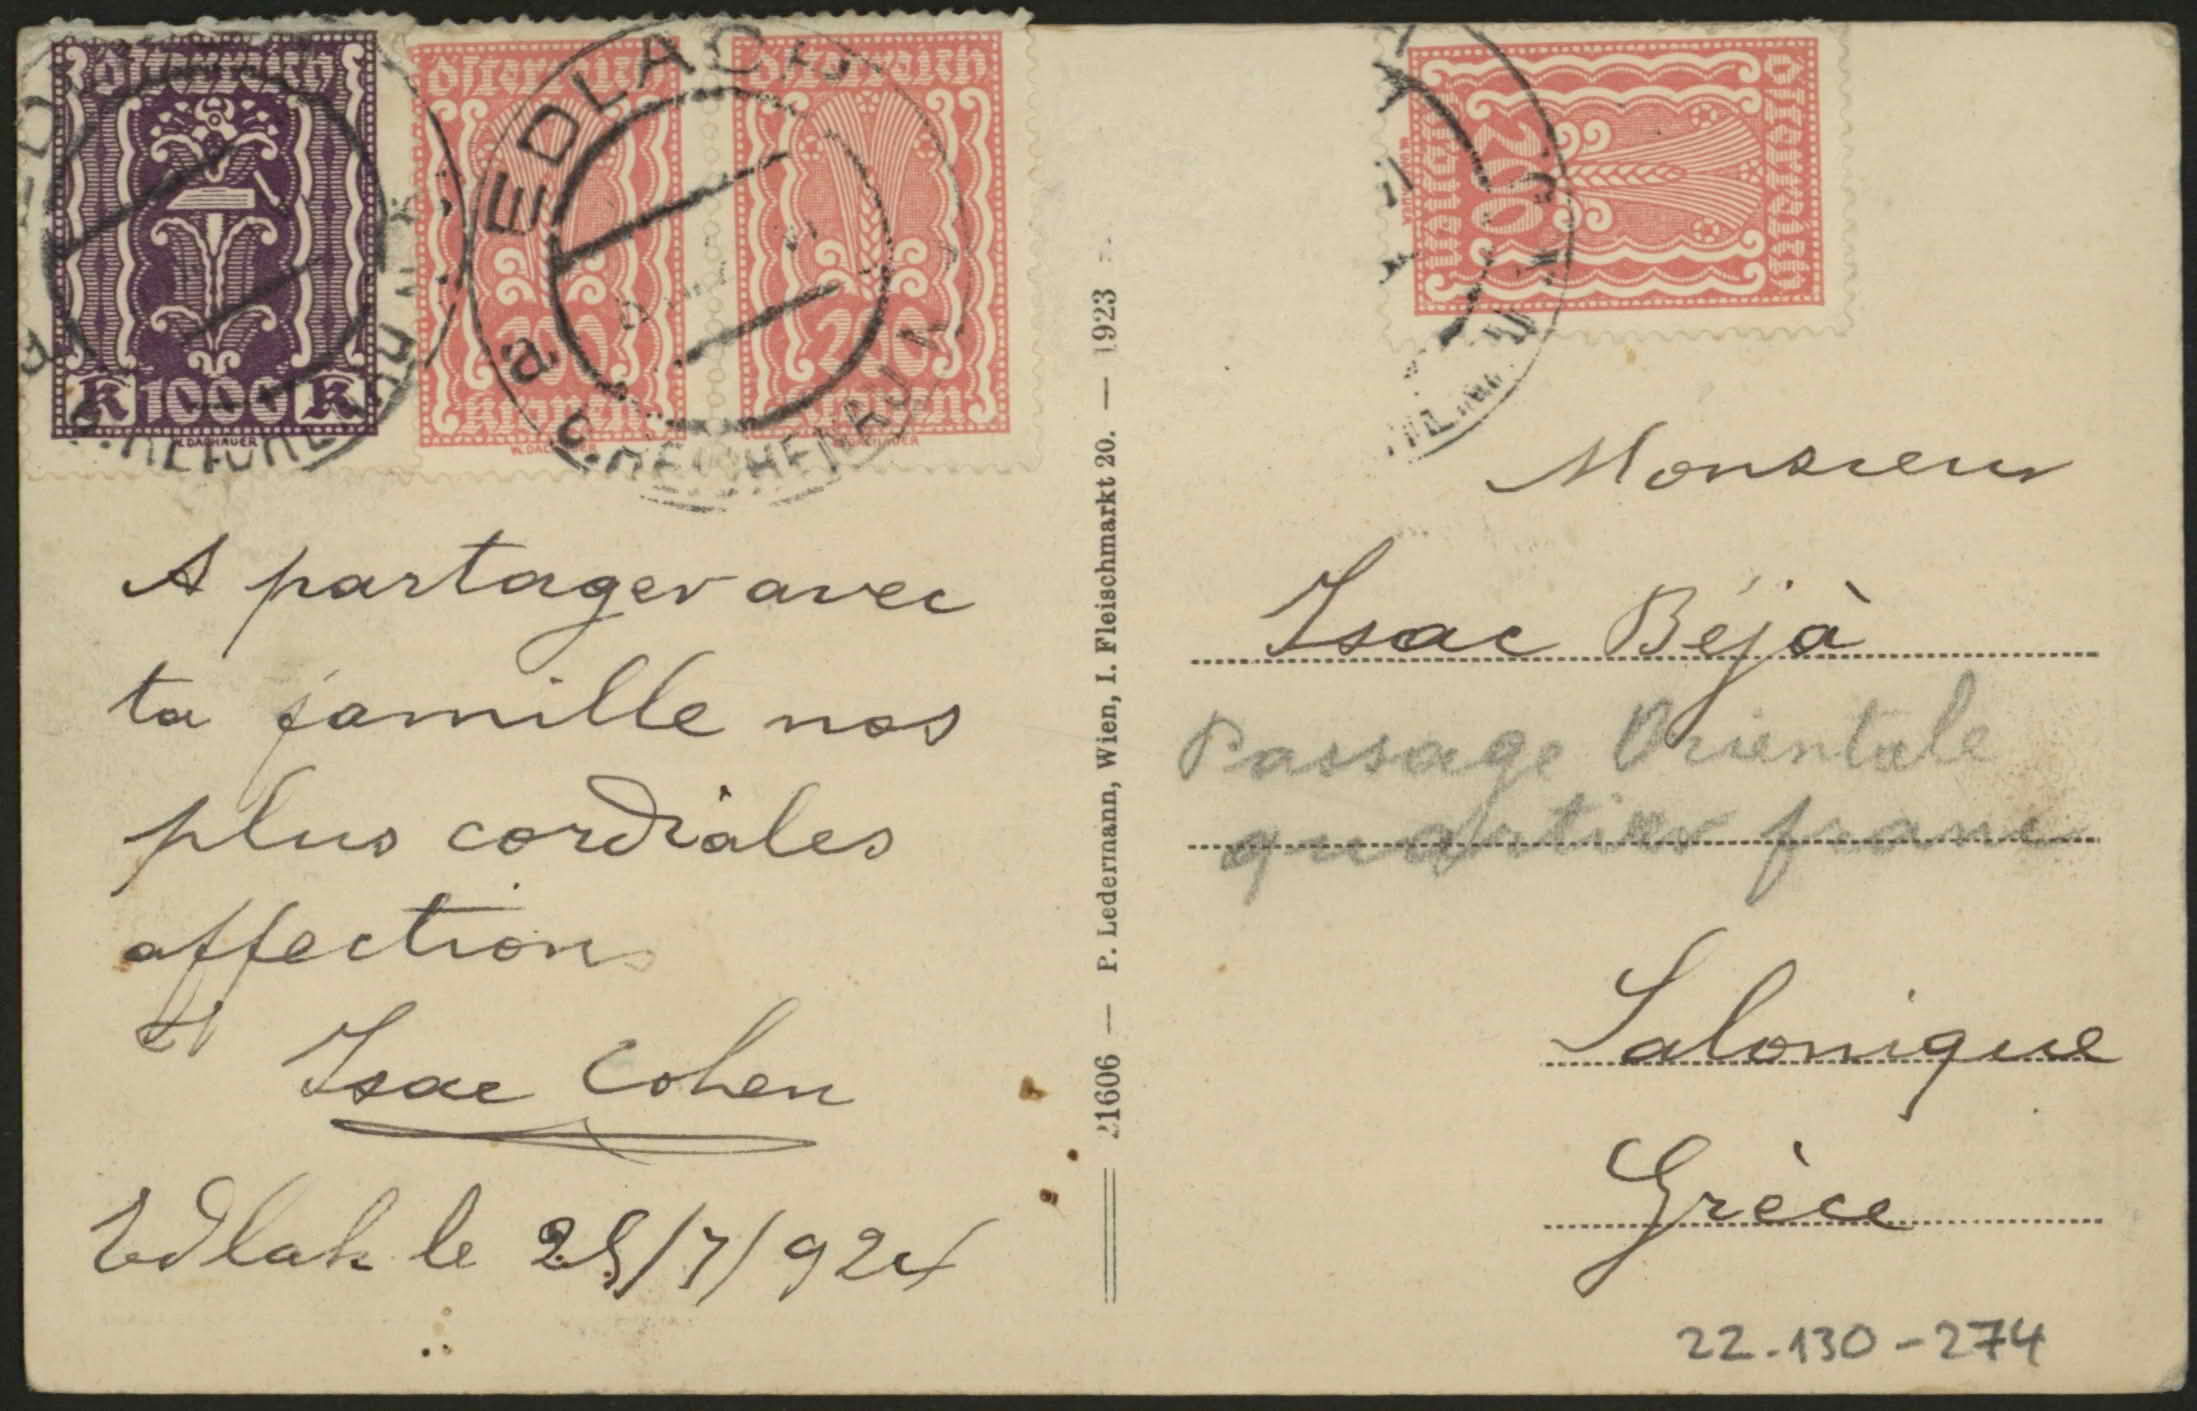 Österreich
K 1000 K
W. DACHAUER
Österreich
200
Kronen
W. DACHAUER
Österreich
200
Kronen
W. DACHAUER
Österreich
200
Kronen
EDLACH
a
b. REICHENAU
A partager avec
ta famille nos
plus cordiales
affections
Isac Cohen
Edlah le 25/7/924
21606 — P. Ledermann, Wien, I. Fleischmarkt 20. — 1923
Monsieur
Isac Béjà
Passage Orientale
quartier franc
Salonique
Grèce
22-130-274